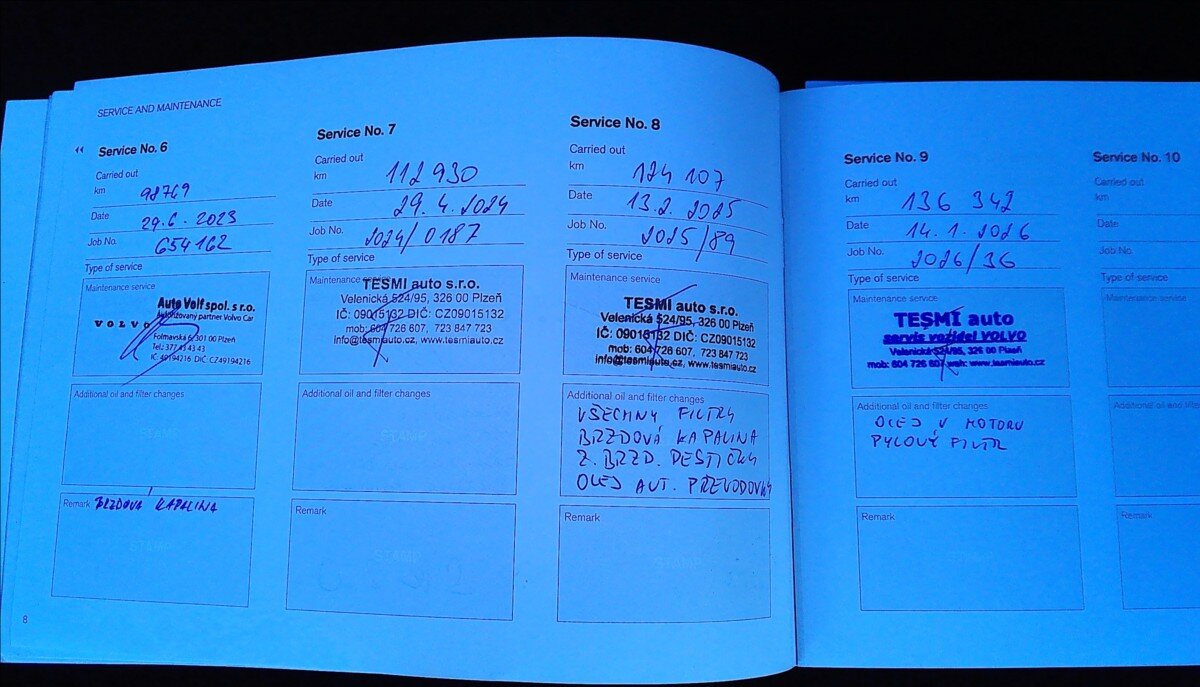 SERVICE AND MAINTENANCE
Service No. 6
Carried out
km 98769
Date 29.6.2023
Job No. 654162
Type of service
Maintenance service
Auto Volf spol. s r.o.
Autorizovaný partner Volvo Car
VOLVO
Folmavská 6, 301 00 Plzeň
Tel.: 377 43 43 43
IČ: 49194216 DIČ: CZ49194216
Additional oil and filter changes
STAMP
Remark BRZDOVA KAPALINA
8
Service No. 7
Carried out
km 112 930
Date 29.4.2024
Job No. 2024/0187
Type of service
Maintenance service
TESMI auto s.r.o.
Velenická 524/95, 326 00 Plzeň
IČ: 09015132 DIČ: CZ09015132
mob: 604 726 607, 723 847 723
info@tesmiauto.cz, www.tesmiauto.cz
Additional oil and filter changes
STAMP
Remark
STAMP
Service No. 8
Carried out
km 124 107
Date 13.2.2025
Job No. 2025/89
Type of service
Maintenance service
TESMI auto s.r.o.
Velenická 524/95, 326 00 Plzeň
IČ: 09015132 DIČ: CZ09015132
mob: 604 726 607, 723 847 723
info@tesmiauto.cz, www.tesmiauto.cz
Additional oil and filter changes
VŠECHNY FILTRY
BRZDOVÁ KAPALINA
Z. BRZD. DESTIČKY
OLEJ AUT. PŘEVODOVKY
Remark
Service No. 9
Carried out
km 136 342
Date 14.1.2026
Job No. 2026/36
Type of service
Maintenance service
TESMI auto
servis vozidel VOLVO
Velenická 524/95, 326 00 Plzeň
mob: 604 726 607 web: www.tesmiauto.cz
Additional oil and filter changes
OLEJ V MOTORU
PYLOVÝ FILTR
Remark
Service No. 10
Carried out
km
Date
Job No.
Type of service
Maintenance service
Additional oil and filter
Remark